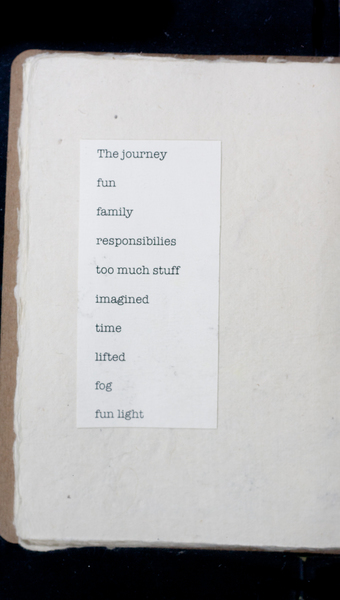 The journey
fun
family
responsibilies
too much stuff
imagined
time
lifted
fog
fun light